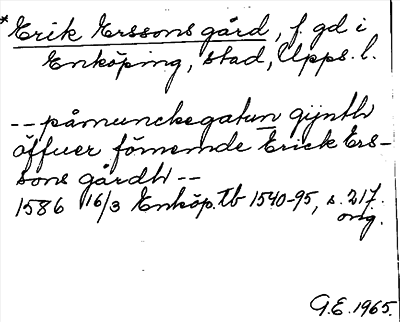 *Erik Erssons gård, f. gd i
Enköping, stad, Upps. l.
-- påmunckegatun gijnth
öffuer förnemde Erick Ers-
sons gårdh --
1586 16/3 Enköp. tb 1540-95, s. 217.
orig.
G.E. 1965.